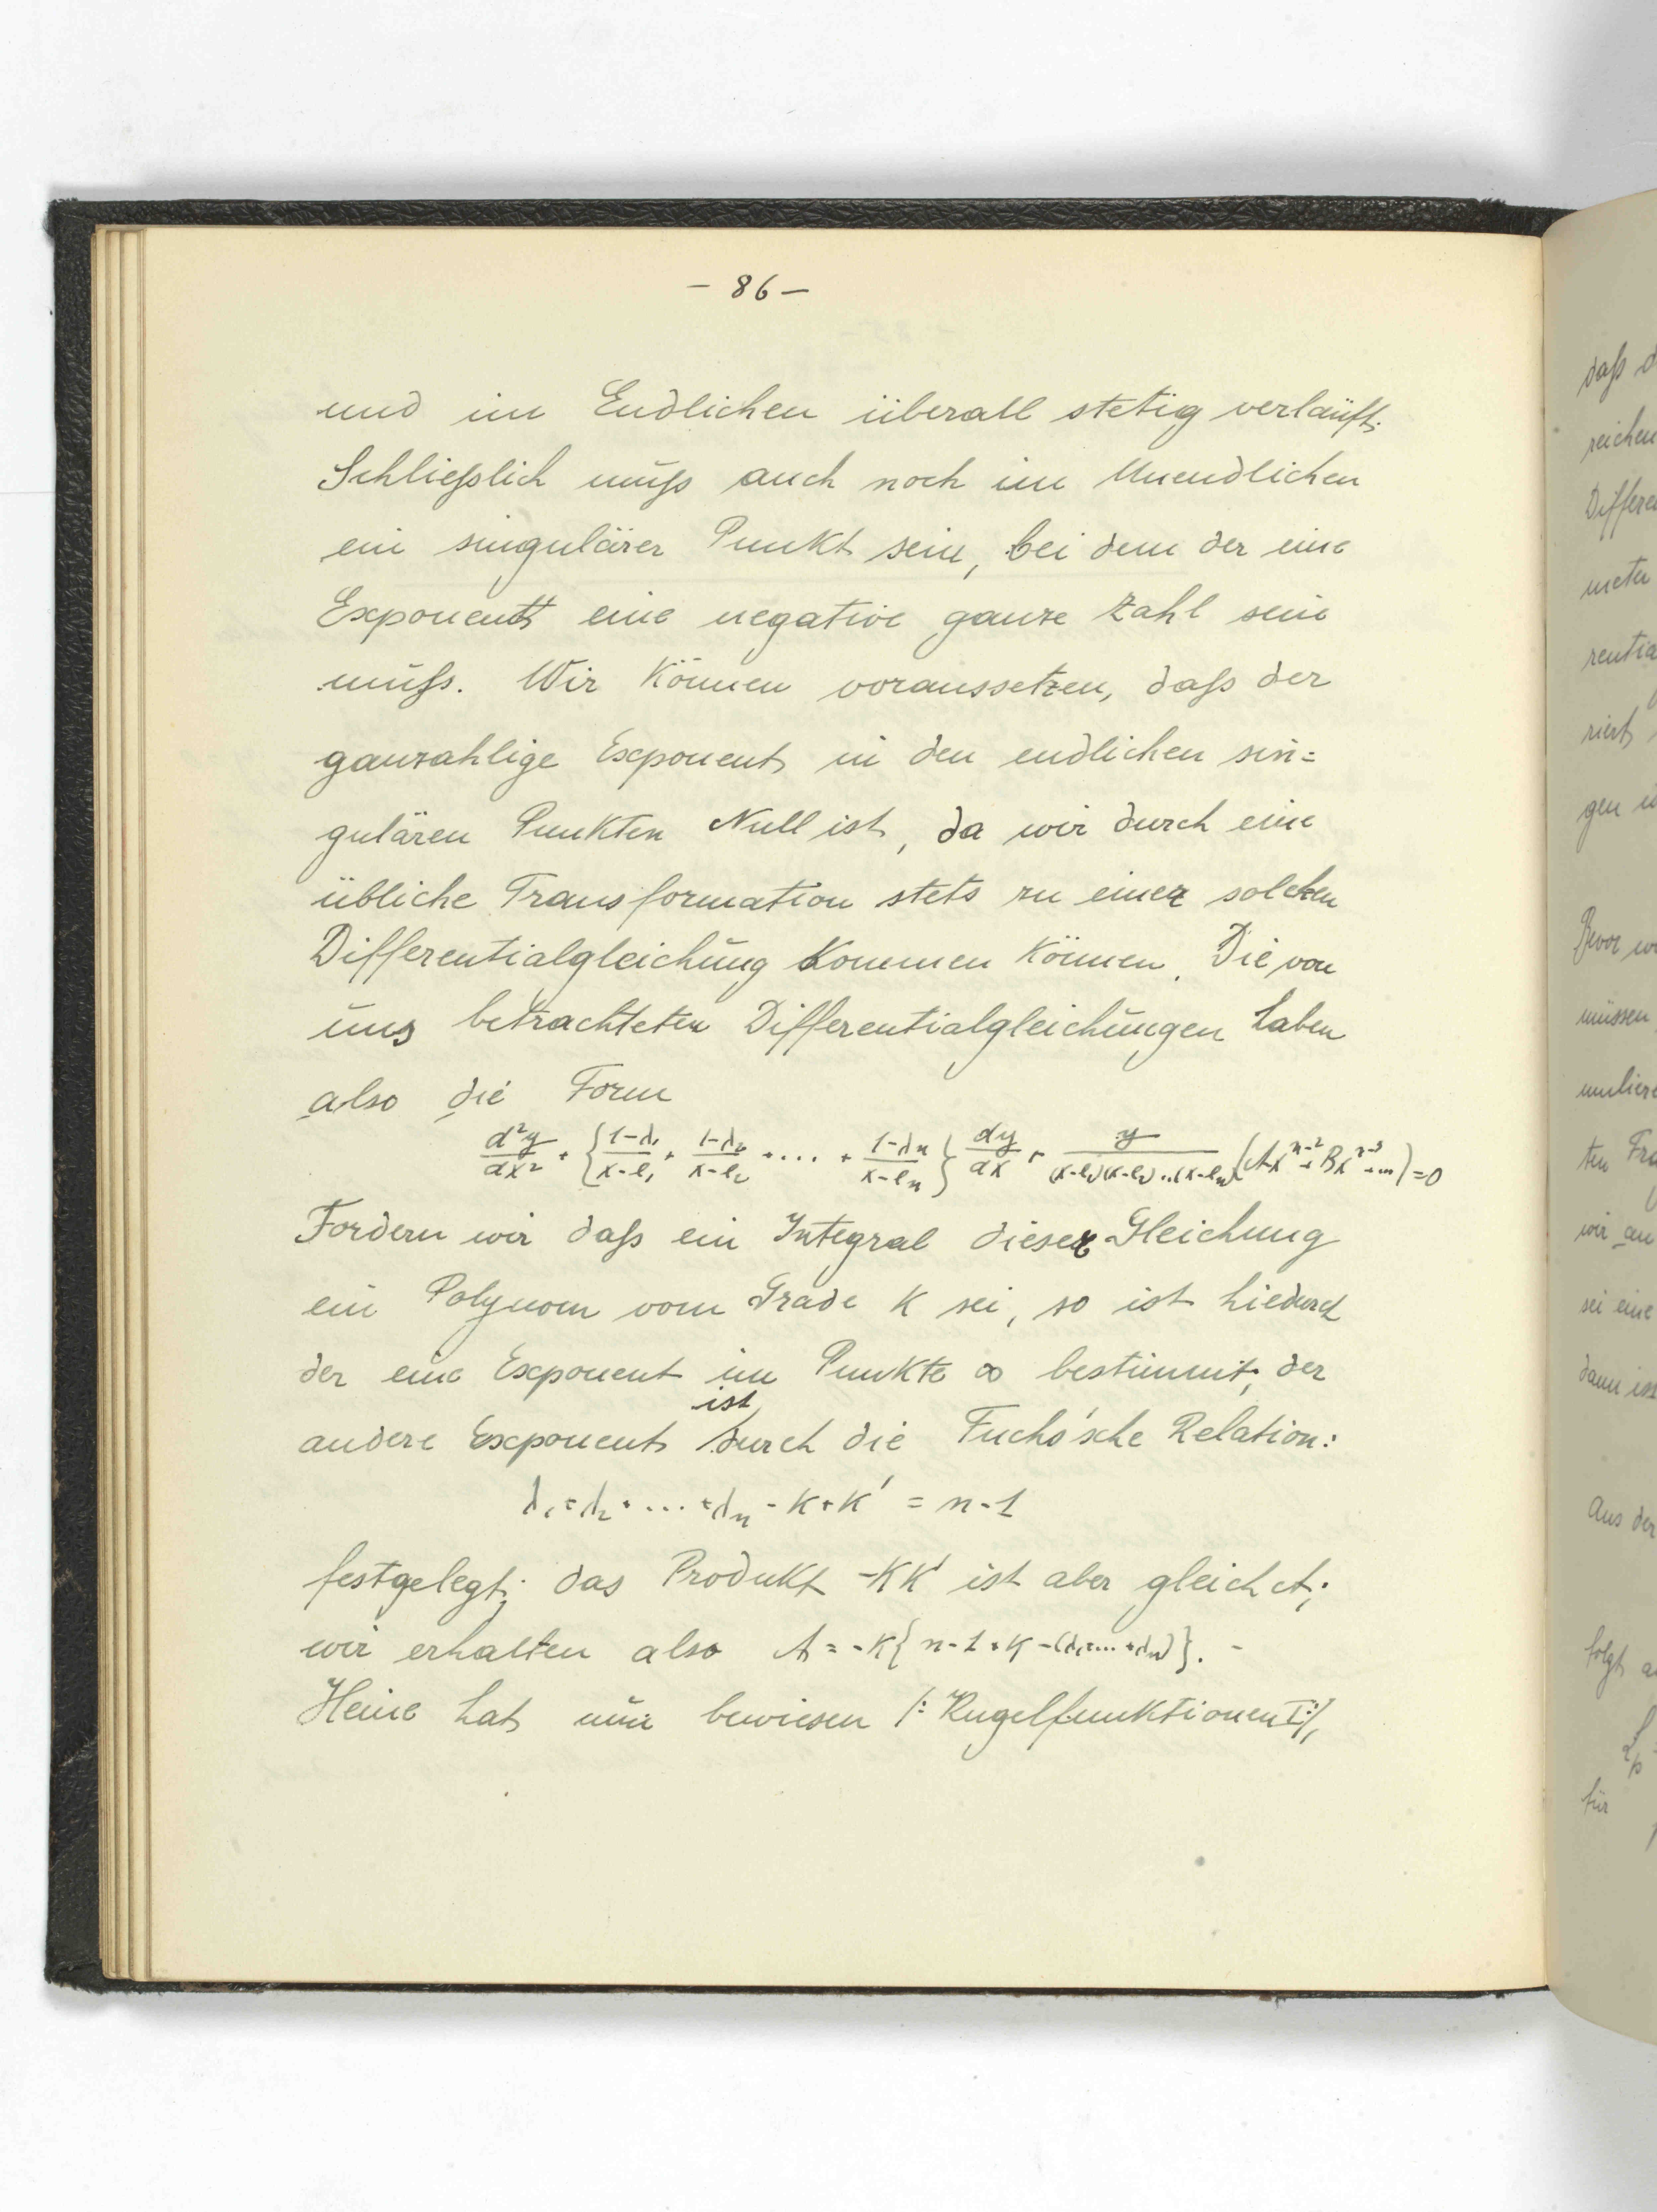 - 86 -
und im Endlichen überall stetig verläuft.
Schließlich muß auch noch im Unendlichen
ein singulärer Punkt sein, bei dem der eine
Exponent eine negative ganze Zahl sein
muß. Wir können voraussetzen, daß der
ganzahlige Exponent in den endlichen sin=
gulären Punkten Null ist, da wir durch eine
übliche Transformation stets zu einer solchen
Differentialgleichung kommen können. Die von
uns betrachteten Differentialgleichungen haben
also die Form
d²y/dx² + {(1-λ₁)/(x-e₁) + (1-λ₂)/(x-e₂) + .... + (1-λₙ)/(x-eₙ)} dy/dx + y/((x-e₁)(x-e₂)...(x-eₙ)) (Axⁿ⁻² + Bxⁿ⁻³ + ...) = 0
Fordern wir daß ein Integral dieser Gleichung
ein Polynom vom Grade K sei, so ist hiedurch
der eine Exponent im Punkte ∞ bestimmt; der
andere Exponent ist durch die Fuchs'sche Relation:
λ₁ + λ₂ + .... + λₙ - K + K' = n - 1
festgelegt; das Produkt -KK' ist aber gleich A;
wir erhalten also A = -K{n-1+K-(λ₁+...+λₙ)}. -
Heine hat nun bewiesen /: Kugelfunktionen I :/,
daß d
reichen
Differe
meter
rentia
riert,
gen i
Bevor w
müssen
muliere
ten Fra
wir an
sei eine
dann ist
Aus der
folgt a
für